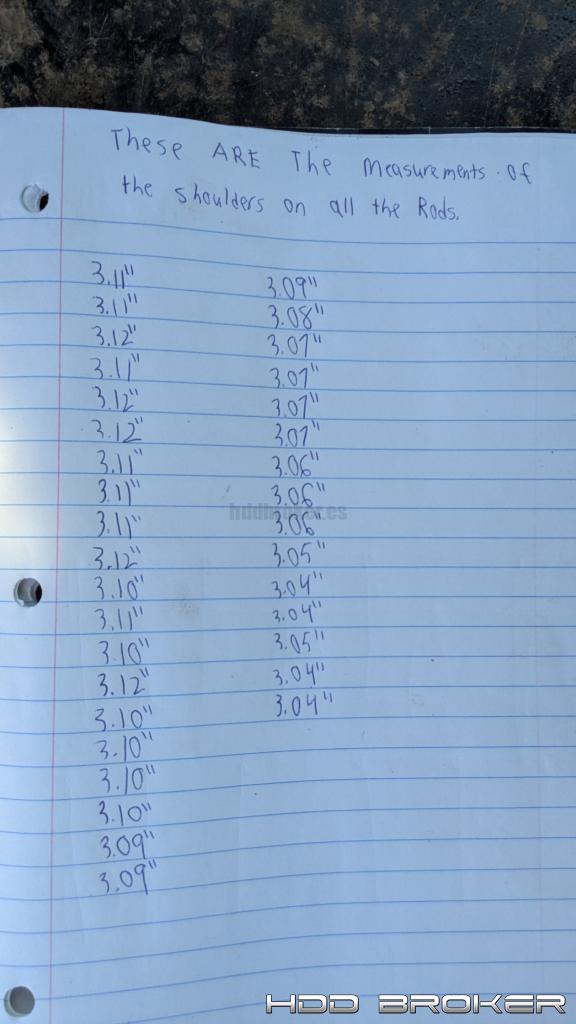 These ARE The Measurements of
the shoulders on all the Rods.
3.11"
3.11"
3.12"
3.11"
3.12"
3.12"
3.11"
3.11"
3.11"
3.12"
3.10"
3.11"
3.10"
3.12"
3.10"
3.10"
3.10"
3.10"
3.09"
3.09"
3.09"
3.08"
3.07"
3.07"
3.07"
3.07"
3.06"
3.06"
3.06
3.05"
3.04"
3.04"
3.05"
3.04"
3.04"
hddbroker.es
HDD BROKER